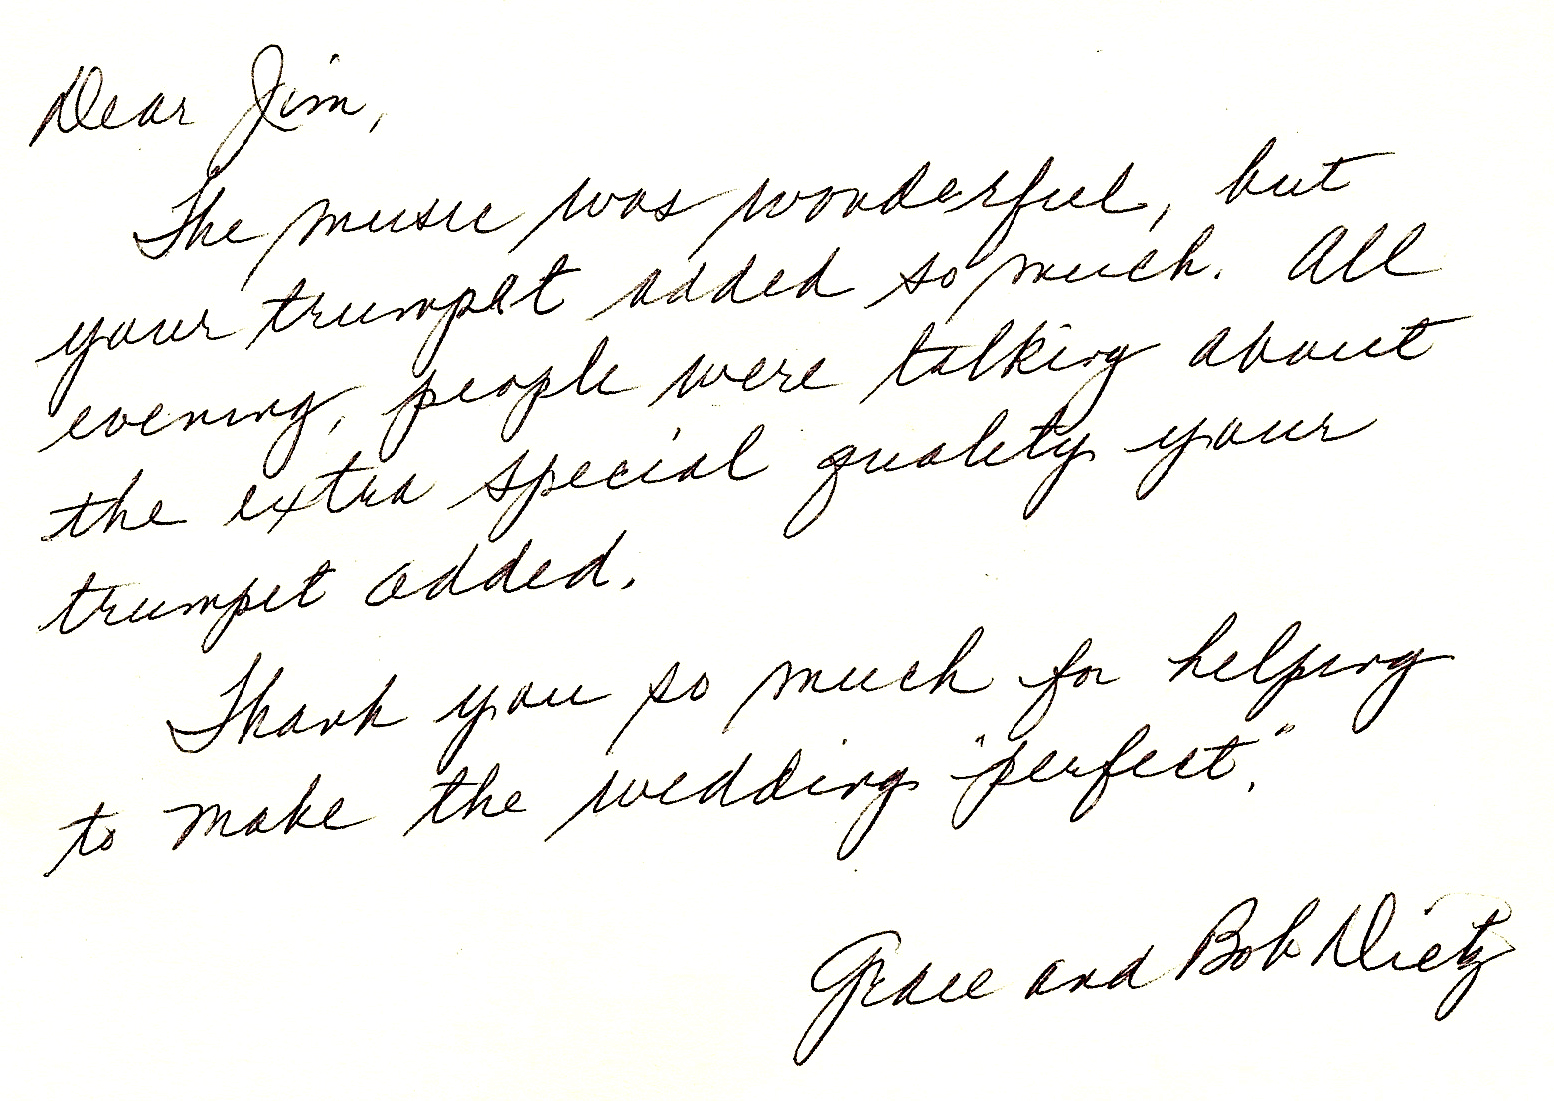 Dear Jim,
The music was wonderful, but
your trumpet added so much. All
evening, people were talking about
the extra special quality your
trumpet added.
Thank you so much for helping
to make the wedding "perfect."
Grace and Bob Dietz